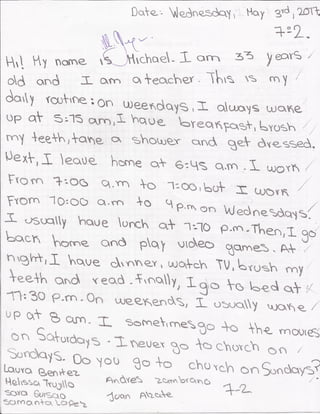 Date: Wednesday, May 3rd, 2017
7=2.
Hi! My name is Michael. I am 33 years
old and I am a teacher. This is my
daily routine: on weekdays, I always wake
up at 5:15 am, I have breakfast, brush
my teeth, take a shower and get dressed.
Next, I leave home at 6:45 a.m. I work
From 7:00 a.m to 1:00, but I work
From 10:00 a.m to 4 p.m on Wednesdays.
I usually have lunch at 1:10 p.m. Then, I go
back home and play video games. At
night, I have dinner, watch TV, brush my
teeth and read. Finally, I go to bed at
11:30 p.m. On weekends, I usually wake
up at 8 am. I sometimes go to the movies
on Saturdays. I never go to church on
Sundays. Do you go to church on Sundays?
Laura Benitez
Melissa Trujillo Andres Zambrano
Sara 7-2
Samanta Lopez Juan Alzate